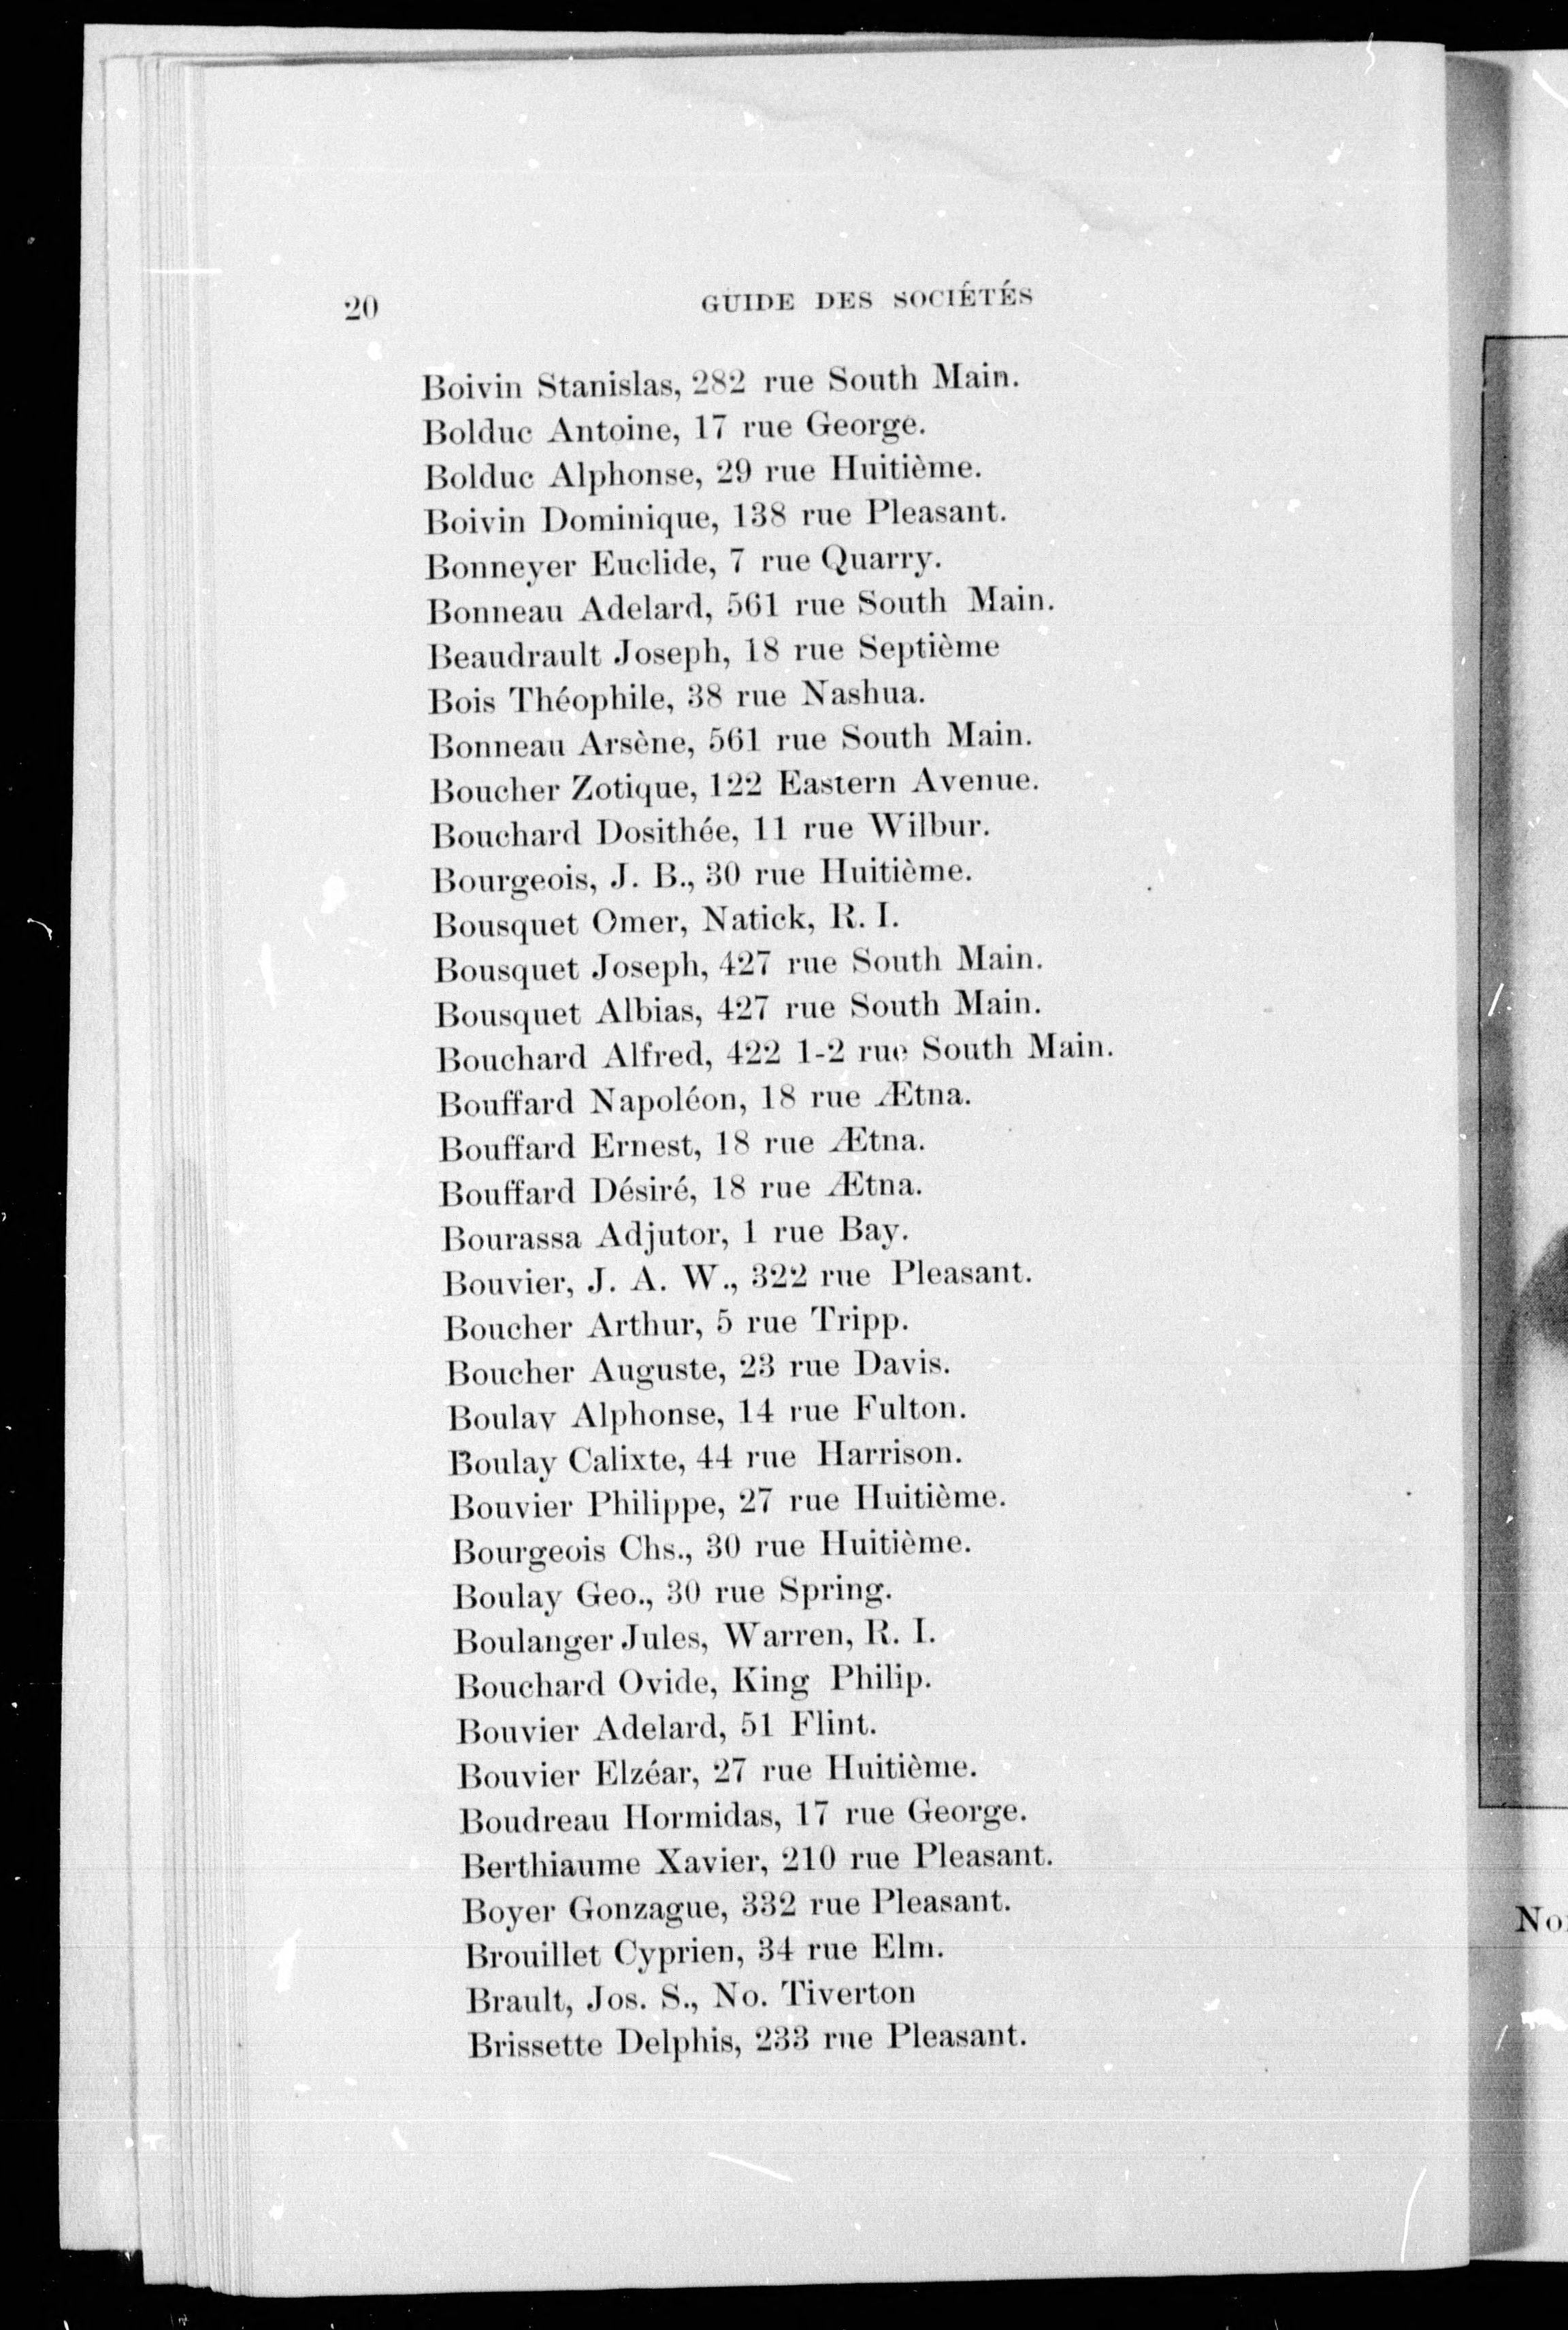 20
GUIDE DES SOCIÉTÉS
Boivin Stanislas, 282 rue South Main.
Bolduc Antoine, 17 rue George.
Bolduc Alphonse, 29 rue Huitième.
Boivin Dominique, 138 rue Pleasant.
Bonneyer Euclide, 7 rue Quarry.
Bonneau Adelard, 561 rue South Main.
Beaudrault Joseph, 18 rue Septième
Bois Théophile, 38 rue Nashua.
Bonneau Arsène, 561 rue South Main.
Boucher Zotique, 122 Eastern Avenue.
Bouchard Dosithée, 11 rue Wilbur.
Bourgeois, J. B., 30 rue Huitième.
Bousquet Omer, Natick, R. I.
Bousquet Joseph, 427 rue South Main.
Bousquet Albias, 427 rue South Main.
Bouchard Alfred, 422 1-2 rue South Main.
Bouffard Napoléon, 18 rue Ætna.
Bouffard Ernest, 18 rue Ætna.
Bouffard Désiré, 18 rue Ætna.
Bourassa Adjutor, 1 rue Bay.
Bouvier, J. A. W., 322 rue Pleasant.
Boucher Arthur, 5 rue Tripp.
Boucher Auguste, 23 rue Davis.
Boulay Alphonse, 14 rue Fulton.
Boulay Calixte, 44 rue Harrison.
Bouvier Philippe, 27 rue Huitième.
Bourgeois Chs., 30 rue Huitième.
Boulay Geo., 30 rue Spring.
Boulanger Jules, Warren, R. I.
Bouchard Ovide, King Philip.
Bouvier Adelard, 51 Flint.
Bouvier Elzéar, 27 rue Huitième.
Boudreau Hormidas, 17 rue George.
Berthiaume Xavier, 210 rue Pleasant.
Boyer Gonzague, 332 rue Pleasant.
Brouillet Cyprien, 34 rue Elm.
Brault, Jos. S., No. Tiverton
Brissette Delphis, 233 rue Pleasant.